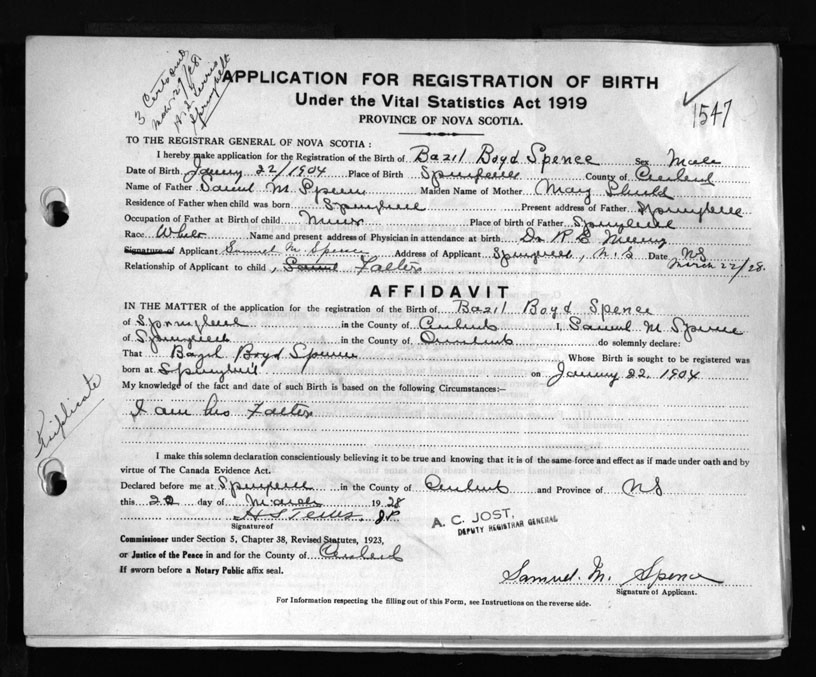 3 Certs and
Mar. 27/28
H. S. Terris
Springhill
APPLICATION FOR REGISTRATION OF BIRTH
Under the Vital Statistics Act 1919
PROVINCE OF NOVA SCOTIA.
1547
TO THE REGISTRAR GENERAL OF NOVA SCOTIA :
I hereby make application for the Registration of the Birth of Bazil Boyd Spence Sex Male
Date of Birth January 22/1904 Place of Birth Springhill County of Cumberland
Name of Father Samuel M. Spence Maiden Name of Mother May
Residence of Father when child was born Springhill Present address of Father Springhill
Occupation of Father at Birth of child Miner Place of birth of Father Springhill
Race White Name and present address of Physician in attendance at birth Dr
Signature of Applicant Samuel M. Spence Address of Applicant Springhill, N.S Date March 22/28.
Relationship of Applicant to child, Samuel Father
AFFIDAVIT
IN THE MATTER of the application for the registration of the Birth of Bazil Boyd Spence
of Springhill in the County of Cumberland I, Samuel M. Spence
of Springhill in the County of Cumberland do solemnly declare:
That Bazil Boyd Spence Whose Birth is sought to be registered was
born at Springhill on January 22, 1904
My knowledge of the fact and date of such Birth is based on the following Circumstances:—
I am his Father
Triplicate
I make this solemn declaration conscientiously believing it to be true and knowing that it is of the same force and effect as if made under oath and by
virtue of The Canada Evidence Act.
Declared before me at Springhill in the County of Cumberland and Province of NS
this 22 day of March 1928
H S Terris J.P.
A. C. JOST,
DEPUTY REGISTRAR GENERAL
Signature of
Commissioner under Section 5, Chapter 38, Revised Statutes, 1923,
or Justice of the Peace in and for the County of Cumberland
If sworn before a Notary Public affix seal.
Samuel. M. Spence
Signature of Applicant.
For Information respecting the filling out of this Form, see Instructions on the reverse side.